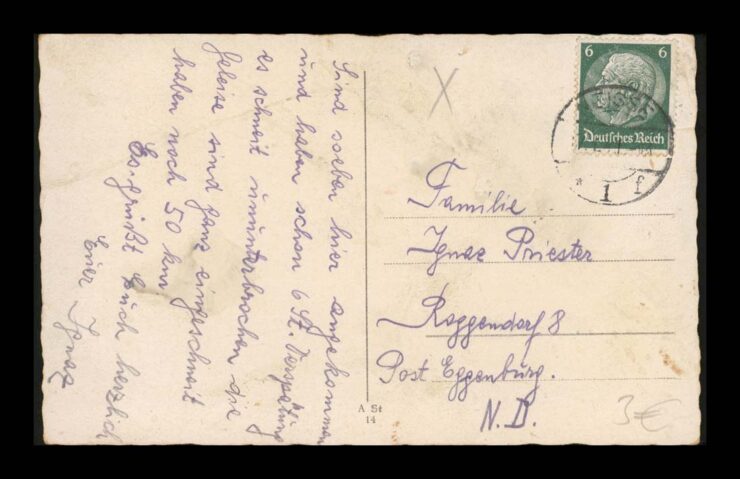 Sind soeben hier angekommen
und haben schon 6 St. Verspätung
es schneit ununterbrochen die
Geleise sind ganz eingeschneit
haben noch 50 km
Es grüßt Euch herzlich
Euer Ignaz
X
6 6
Deutsches Reich
* 1 f
Familie
Ignaz Priester
Roggendorf 8
Post Eggenburg.
N.D.
A St
14
3€